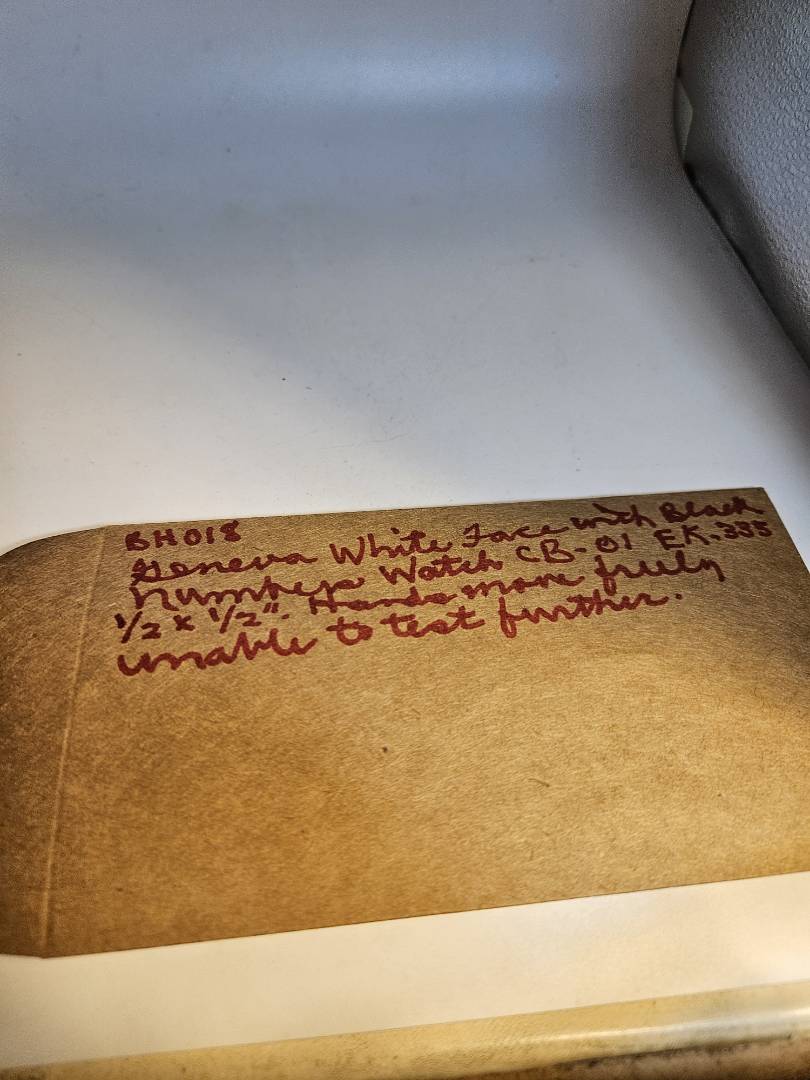 BH018
Geneva White Face with Black
Numbers Watch CB-01 EK-335
1/2 x 1/2". Hands move freely
unable to test further.